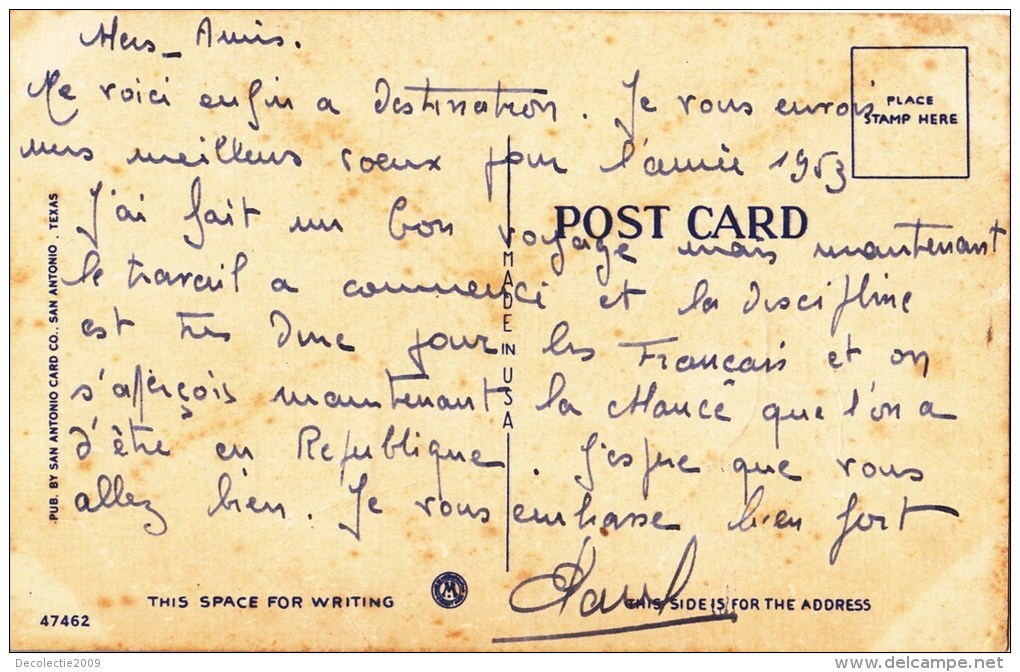 Mes Amis.
Me voici enfin a destination. Je vous envois
mes meilleurs voeux pour l'année 1953
J'ai fait un bon voyage mais maintenant
le travail a commencé et la discipline
est très dure pour les Français et on
s'aperçois maintenant la chance que l'on a
d'être en Republique. J'espre que vous
allez bien. Je vous embrasse bien fort
PLACE
STAMP HERE
POST CARD
MADE IN USA
PUB. BY SAN ANTONIO CARD CO., SAN ANTONIO, TEXAS
THIS SPACE FOR WRITING
THIS SIDE IS FOR THE ADDRESS
47462
Decolectie2009
www.delcampe.net